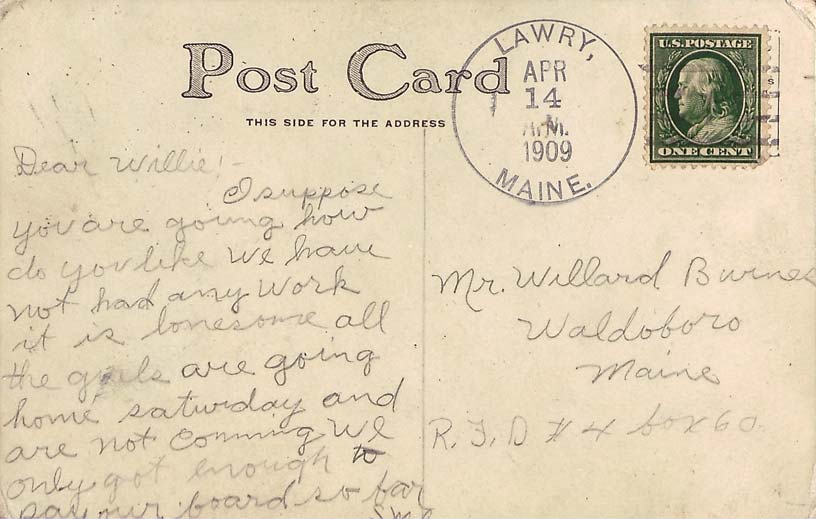 Post Card
THIS SIDE FOR THE ADDRESS
LAWRY,
APR
14
A.M.
1909
MAINE.
U.S. POSTAGE
ONE CENT
Dear Willie! -
I suppose
you are going how
do you like we have
not had any work
it is lonesome all
the girls are going
home saturday and
are not coming we
only got enough to
pay our board so far
Mr. Willard Burnes
Waldoboro
Maine
R.F.D # 4 box 60